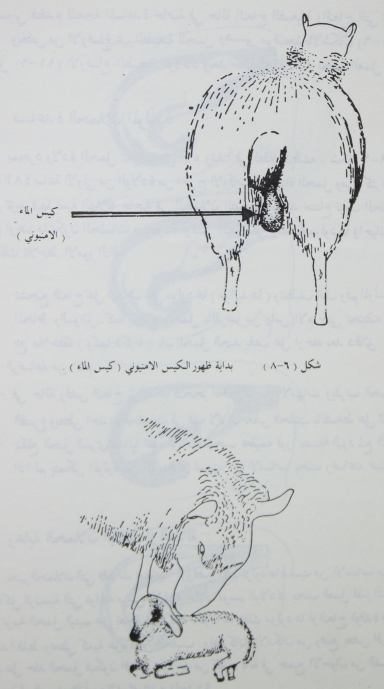 كيس الماء
( الامنيوني )
شكل ( ٦-٨ ) بداية ظهور الكيس الامنيوني ( كيس الماء ) .